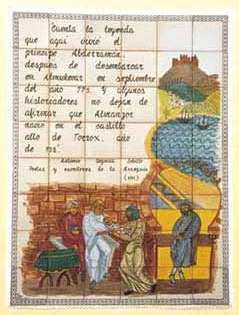 "Cuenta la leyenda
que aquí vivió el
príncipe Abderraman,
después de desembarcar
en Almuñecar en septiembre
del año 755. Y algunos
historiadores no dejan de
afirmar que Almanzor
nació en el castillo
alto de Torrox, año
de
Antonio Segovia
Poetas y escritores de la Axarquía